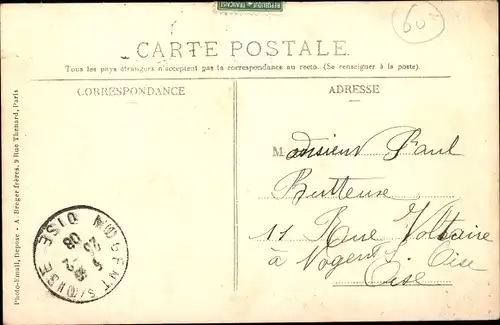 RÉPUBLIQUE FRANÇAISE
60
CARTE POSTALE
Tous les pays étrangers n'acceptent pas la correspondance au recto. (Se renseigner à la poste).
CORRESPONDANCE
ADRESSE
Monsieur Paul
Butteuse
11 Rue Voltaire
à Nogent s/ Oise
Oise
Photo-Email, Depose - A. Breger frères, 9 Rue Thenard, Paris
NOGENT S/ OISE OISE
08